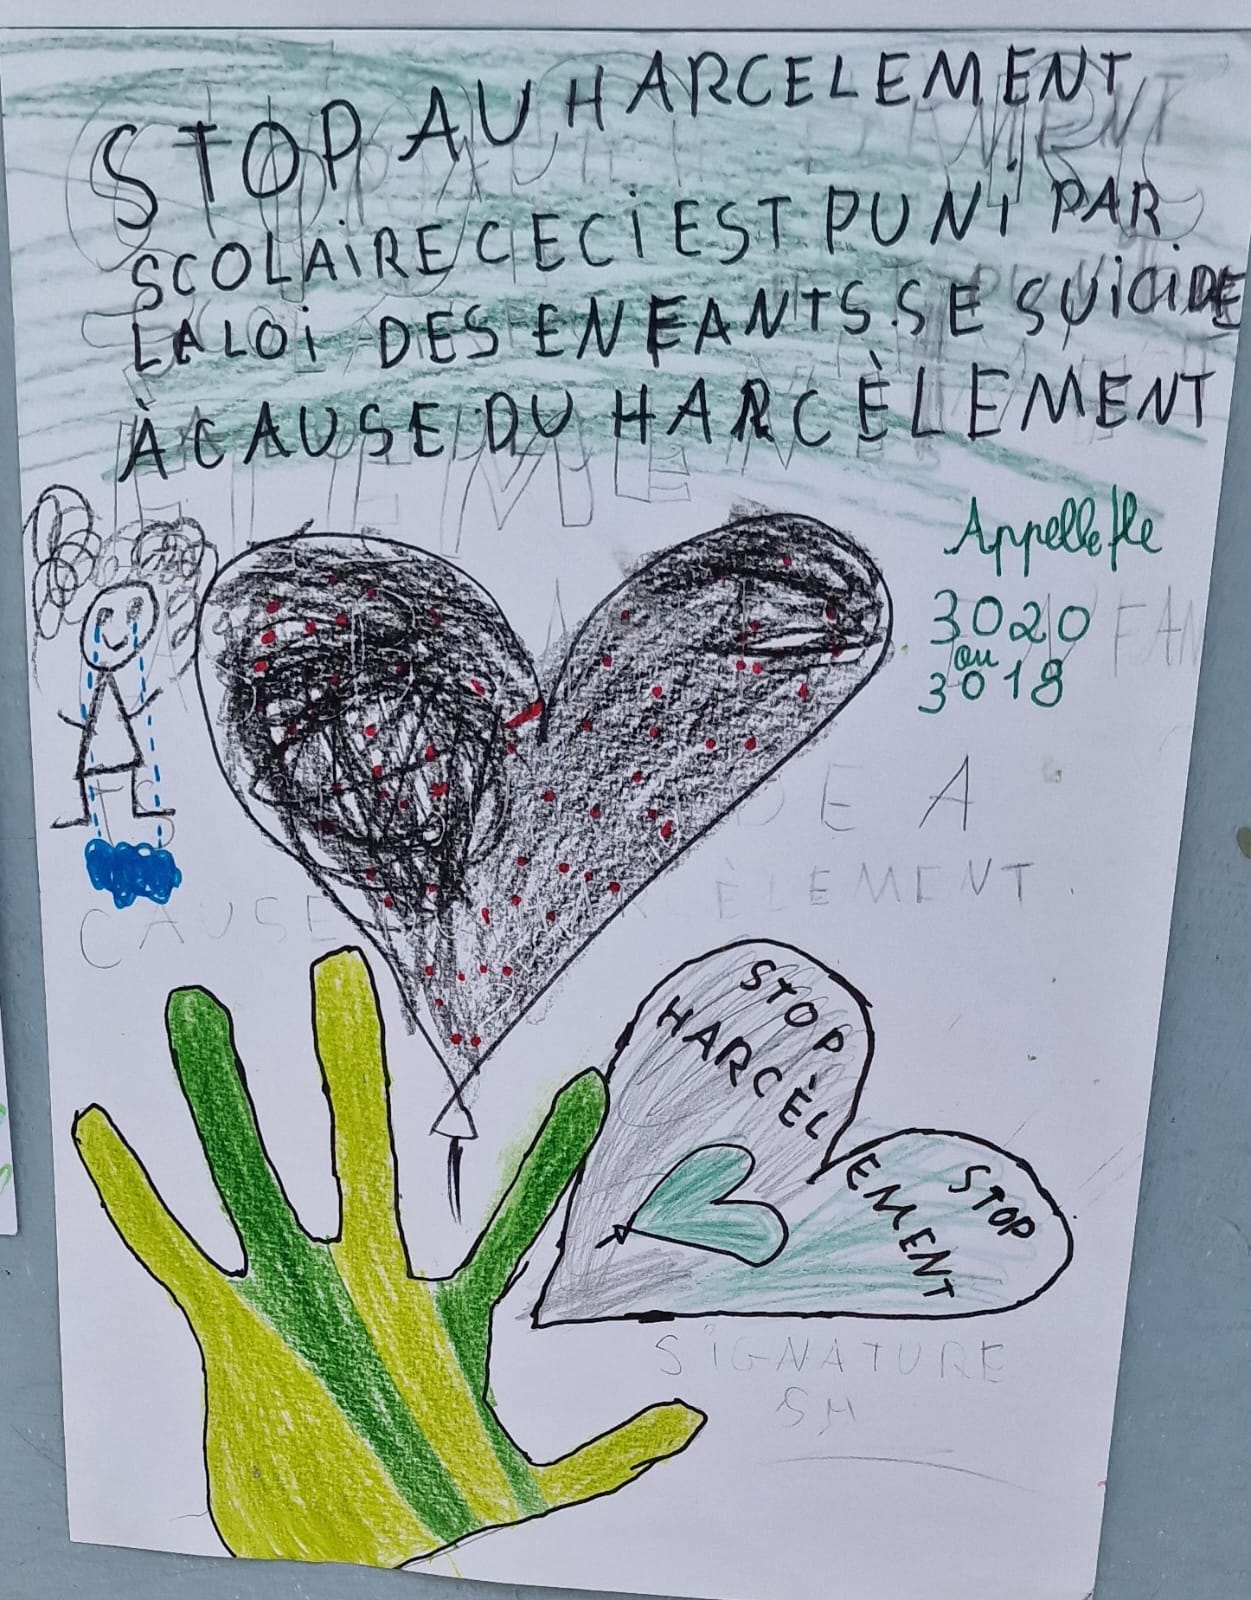 STOP AU HARCELEMENT
SCOLAIRE CECI EST PUNI PAR
LA LOI DES ENFANTS SE SUICIDE
À CAUSE DU HARCÈLEMENT
Appelle le
3020
ou
3018
FAN
DE A
CAUSE ÈLEMENT.
STOP
HARCÈL
EMENT
STOP
SIGNATURE
SH